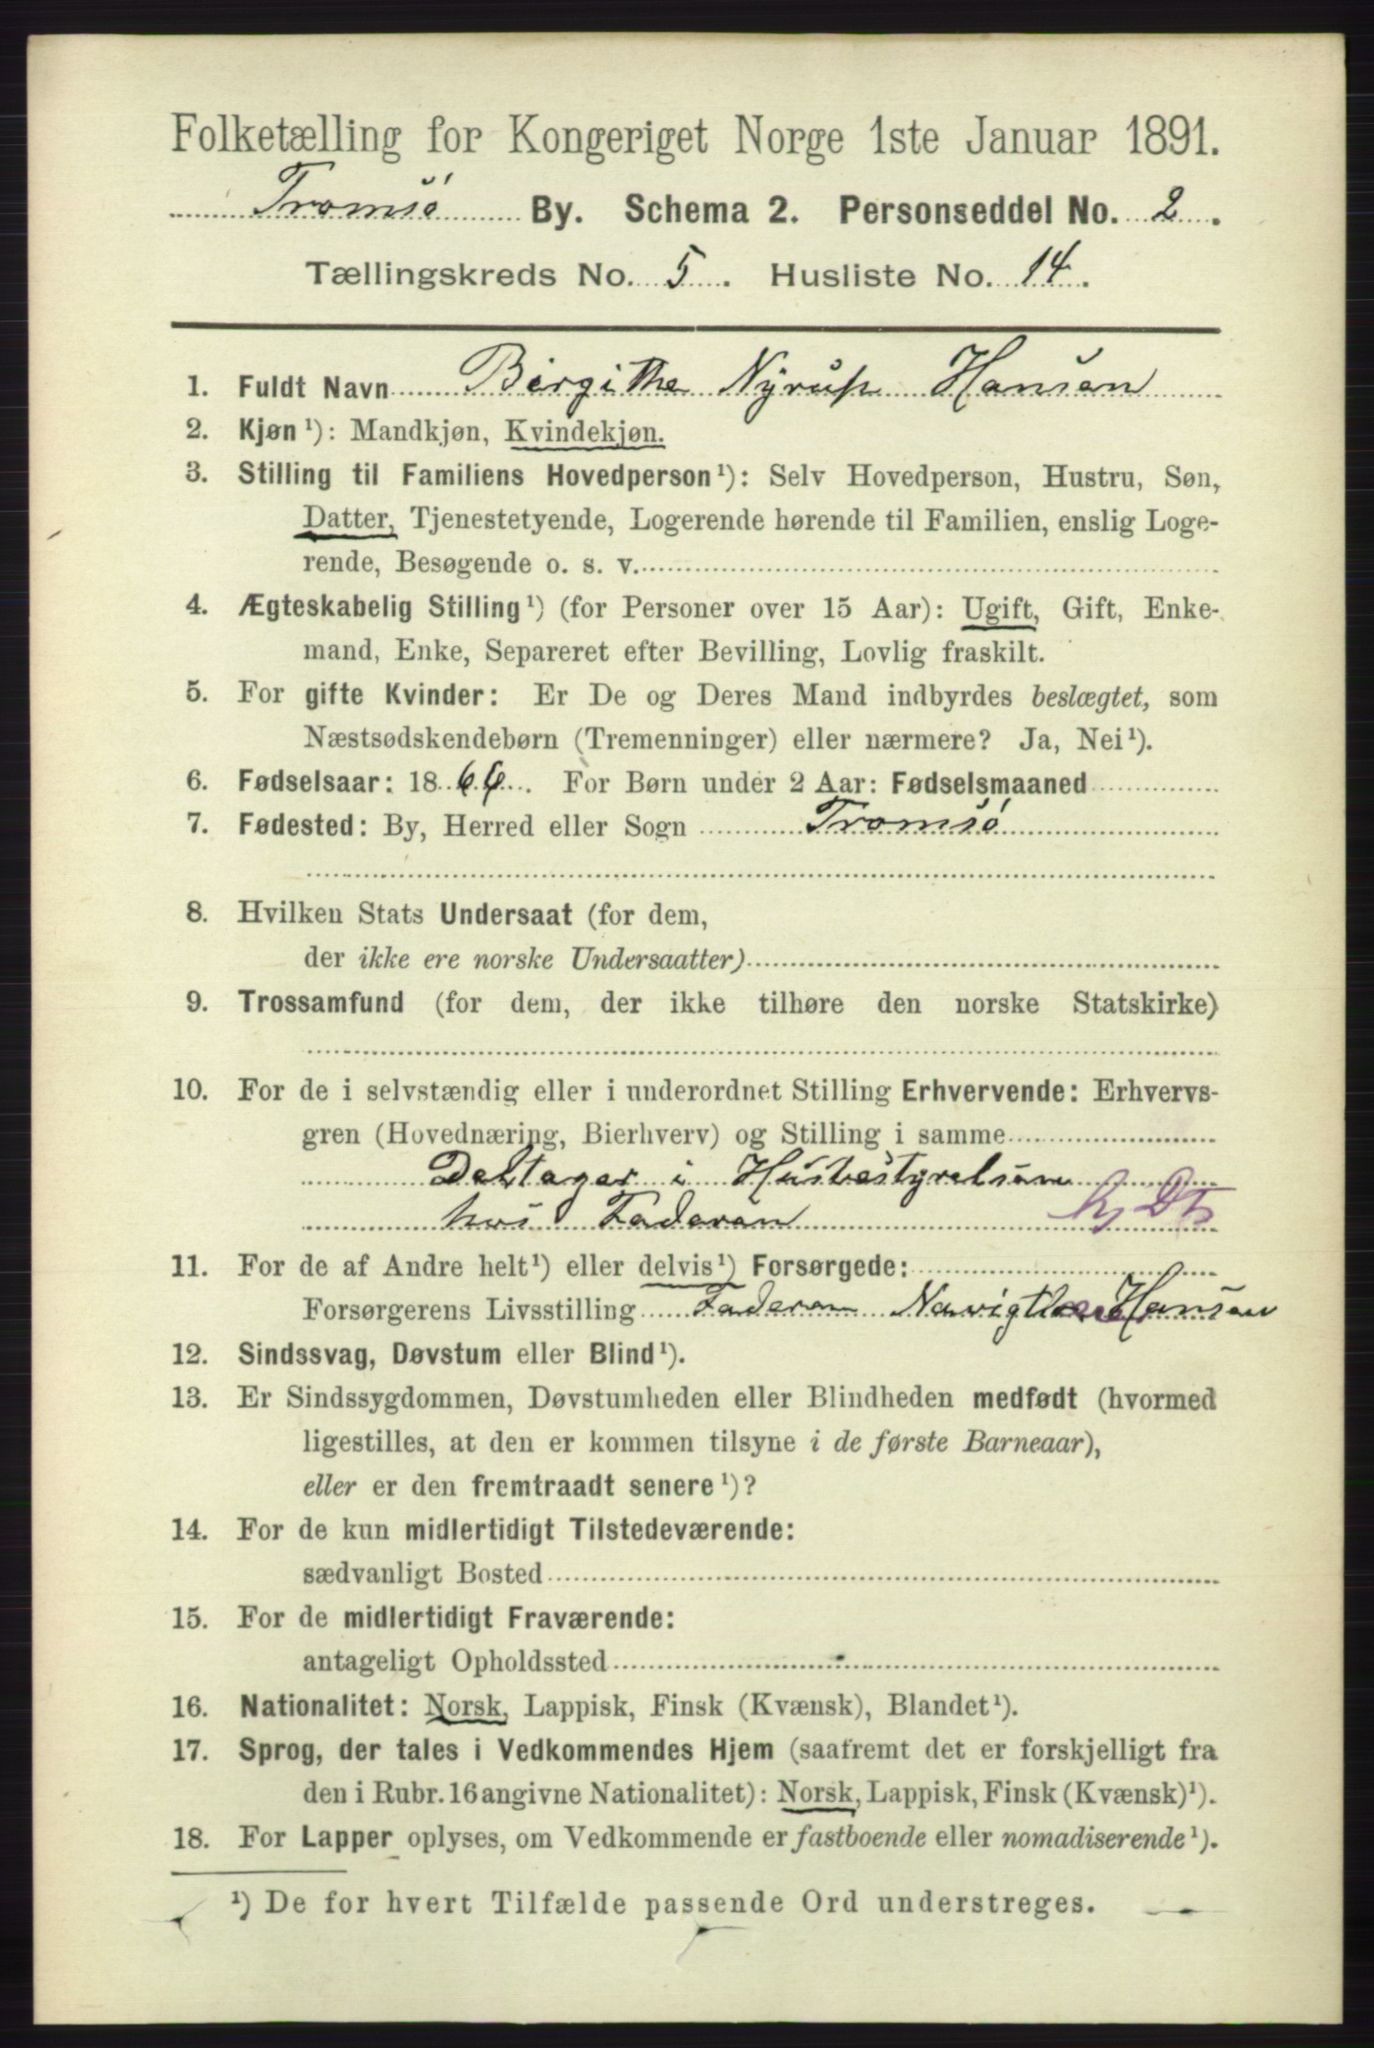 Folketælling for Kongeriget Norge 1ste Januar 1891.
Tromsö By. Schema 2. Personseddel No. 2.
Tællingskreds No. 5. Husliste No. 14.
1. Fuldt Navn Birgithe Nyrup Hansen
2. Kjøn¹): Mandkjøn, Kvindekjøn.
3. Stilling til Familiens Hovedperson¹): Selv Hovedperson, Hustru, Søn,
Datter, Tjenestetyende, Logerende hørende til Familien, enslig Loge-
rende, Besøgende o. s. v.
4. Ægteskabelig Stilling¹) (for Personer over 15 Aar): Ugift, Gift, Enke-
mand, Enke, Separeret efter Bevilling, Lovlig fraskilt.
5. For gifte Kvinder: Er De og Deres Mand indbyrdes beslægtet, som
Næstsødskendebørn (Tremenninger) eller nærmere? Ja, Nei¹).
6. Fødselsaar: 1866. For Børn under 2 Aar: Fødselsmaaned
7. Fødested: By, Herred eller Sogn Tromsö
8. Hvilken Stats Undersaat (for dem,
der ikke ere norske Undersaatter)
9. Trossamfund (for dem, der ikke tilhøre den norske Statskirke)
10. For de i selvstændig eller i underordnet Stilling Erhvervende: Erhvervs-
gren (Hovednæring, Bierhverv) og Stilling i samme
Deltager i Husbestyrelsen
hos Faderen
11. For de af Andre helt¹) eller delvis¹) Forsørgede:
Forsørgerens Livsstilling Faderen Hansen
12. Sindssvag, Døvstum eller Blind¹).
13. Er Sindssygdommen, Døvstumheden eller Blindheden medfødt (hvormed
ligestilles, at den er kommen tilsyne i de første Barneaar),
eller er den fremtraadt senere¹)?
14. For de kun midlertidigt Tilstedeværende:
sædvanligt Bosted
15. For de midlertidigt Fraværende:
antageligt Opholdssted
16. Nationalitet: Norsk, Lappisk, Finsk (Kvænsk), Blandet¹).
17. Sprog, der tales i Vedkommendes Hjem (saafremt det er forskjelligt fra
den i Rubr. 16 angivne Nationalitet): Norsk, Lappisk, Finsk (Kvænsk)¹).
18. For Lapper oplyses, om Vedkommende er fastboende eller nomadiserende¹).
¹) De for hvert Tilfælde passende Ord understreges.